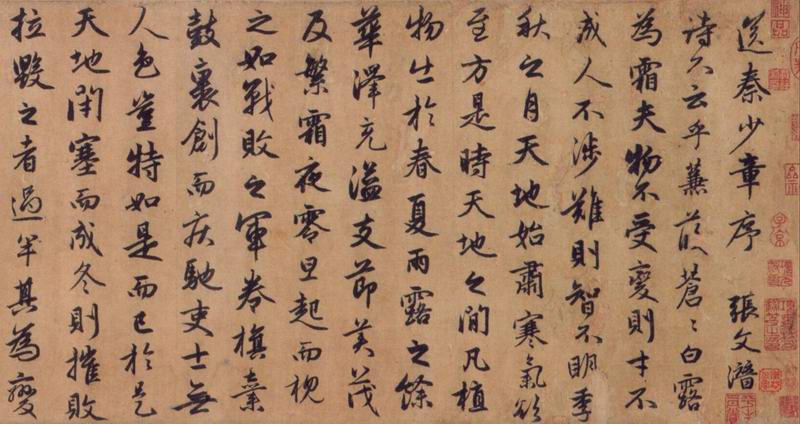 送秦少章序 張文潛
詩不云乎蒹葭蒼〻白露
為霜夫物不受變則才不
成人不涉難則智不明季
秋之月天地始肅寒氣欲
至方是時天地之間凡植
物出於春夏雨露之餘
華澤充溢支節美茂
及繁霜夜零旦起而視
之如戰敗之軍卷旗棄
鼓裹創而疾馳吏士無
人色豈特如是而已於是
天地閉塞而成冬則摧敗
拉毀之者過半其為變